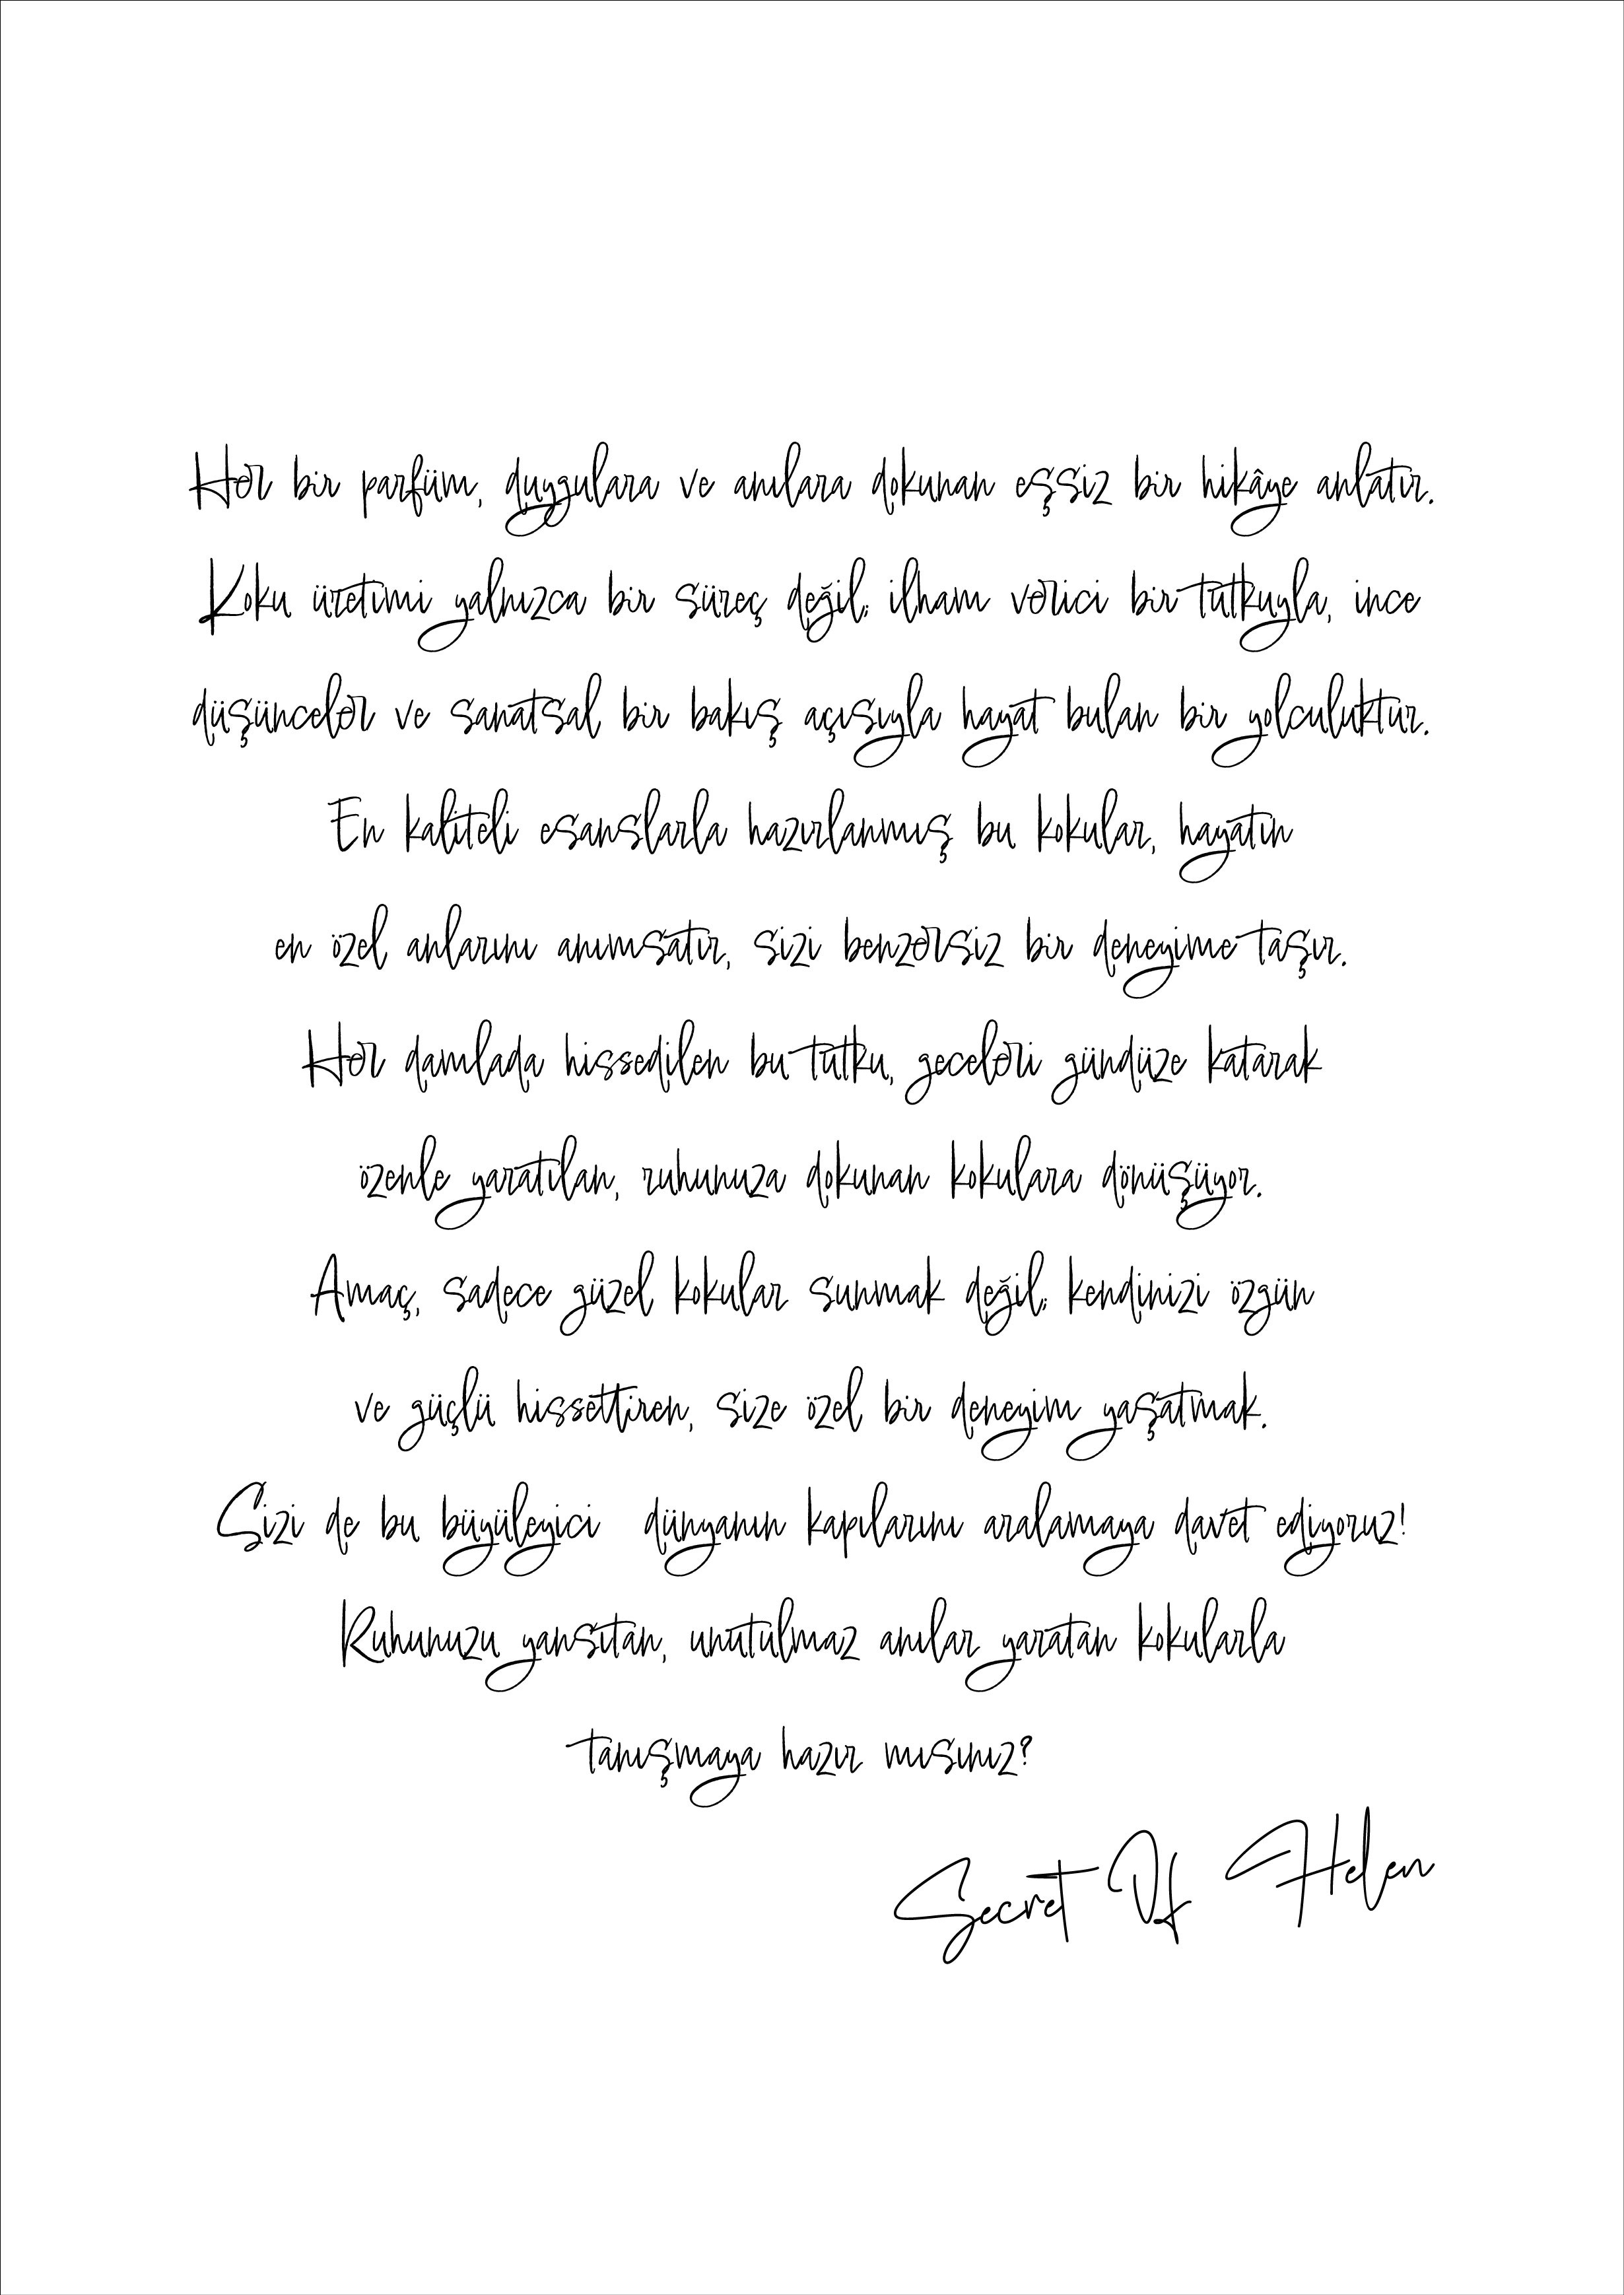 Her bir parfüm, duygulara ve anılara dokunan eşsiz bir hikâye anlatır.
Koku üretimi yalnızca bir süreç değil; ilham verici bir tutkuyla, ince
düşünceler ve sanatsal bir bakış açısıyla hayat bulan bir yolculuktur.
En kaliteli esanslarla hazırlanmış bu kokular, hayatın
en özel anlarını anımsatır, sizi benzersiz bir deneyime taşır.
Her damlada hissedilen bu tutku, geceleri gündüze katarak
özenle yaratılan, ruhunuza dokunan kokulara dönüşüyor.
Amaç, sadece güzel kokular sunmak değil; kendinizi özgün
ve güçlü hissettiren, size özel bir deneyim yaşatmak.
Sizi de bu büyüleyici dünyanın kapılarını aralamaya davet ediyoruz!
Ruhunuzu yansıtan, unutulmaz anılar yaratan kokularla
tanışmaya hazır mısınız?
Secret Of Helen